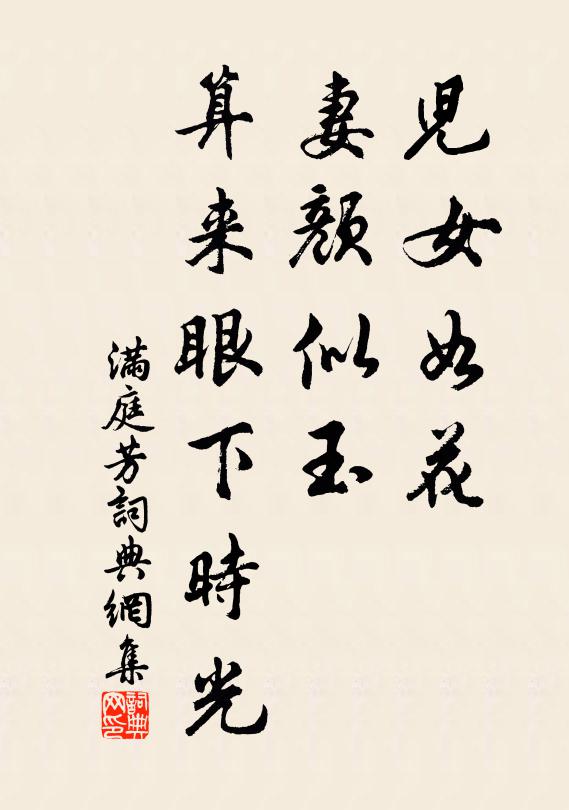 兒女如花
妻顏似玉
算来眼下時光
滿庭芳詞典網集
詞典
网印